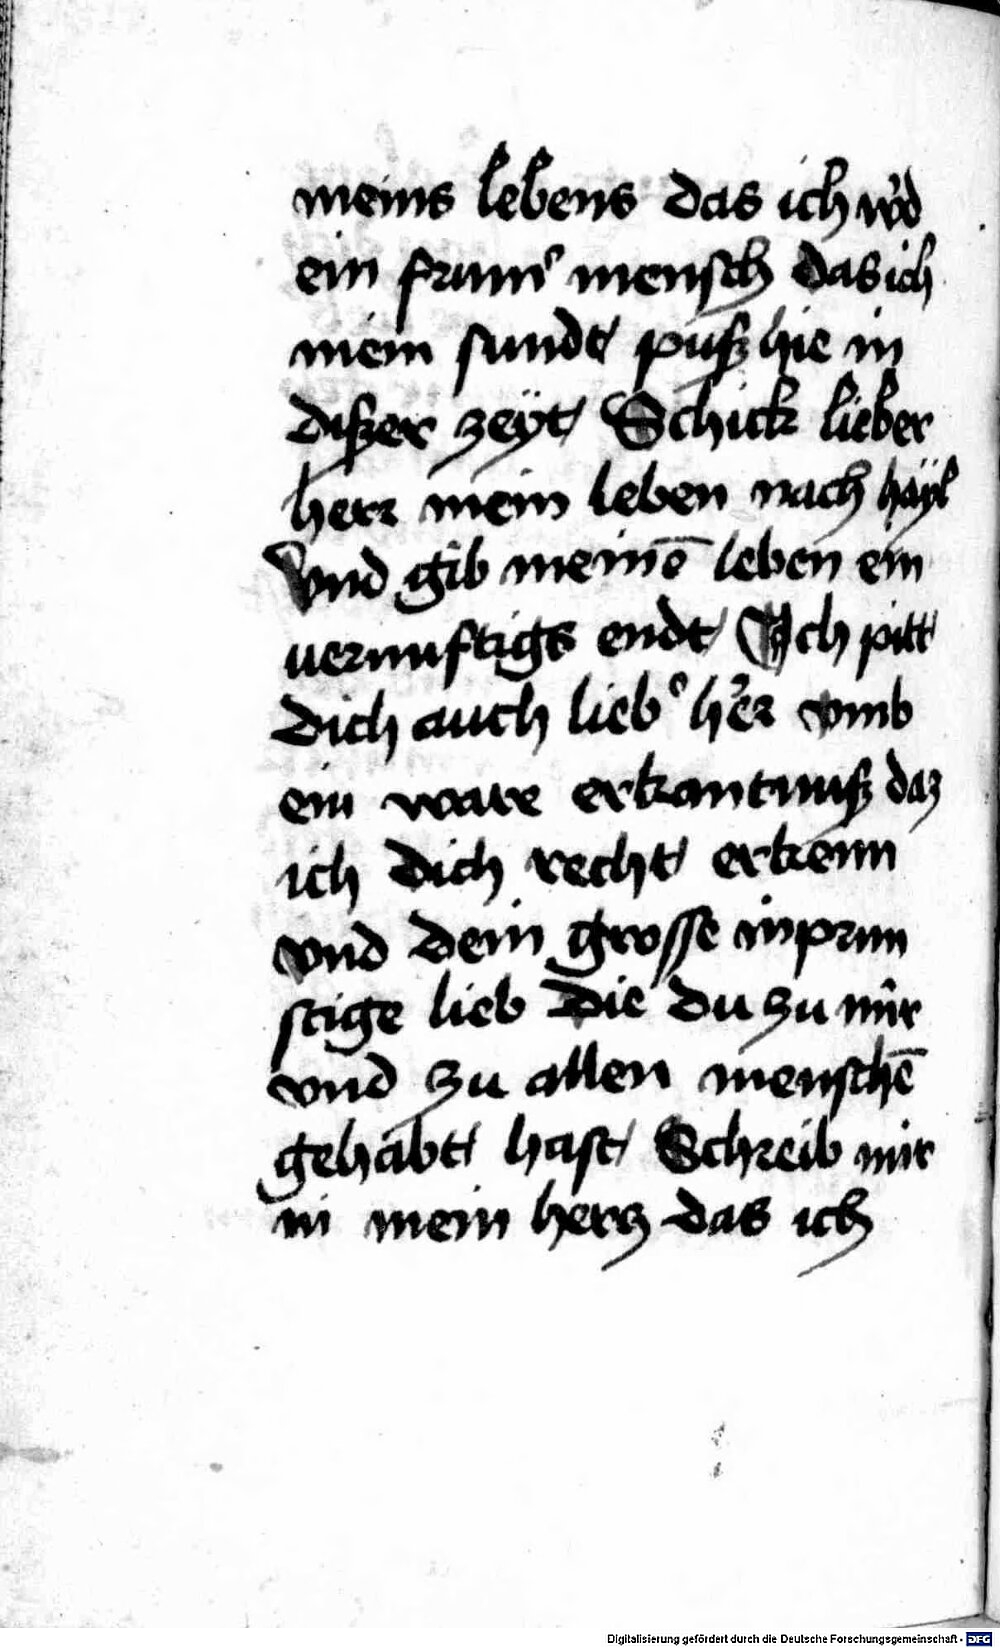 meins lebens das ich w'd
ein frum' mensch das ich
mein sundt puß hie in
dißer zeÿt Schick lieber
herr mein leben nach haÿl
vnd gib meinē leben ein
uernuftigs endt Ich pitt
dich auch lieb' h'er vmb
ein ware erkantnuß daz
ich dich recht erkenn
vnd dein grosse inprun
stige lieb die du zu mir
vnd zu allen menschē
gehabt hast Schreib mir
in mein hercz das ich
Digitalisierung gefördert durch die Deutsche Forschungsgemeinschaft - DFG